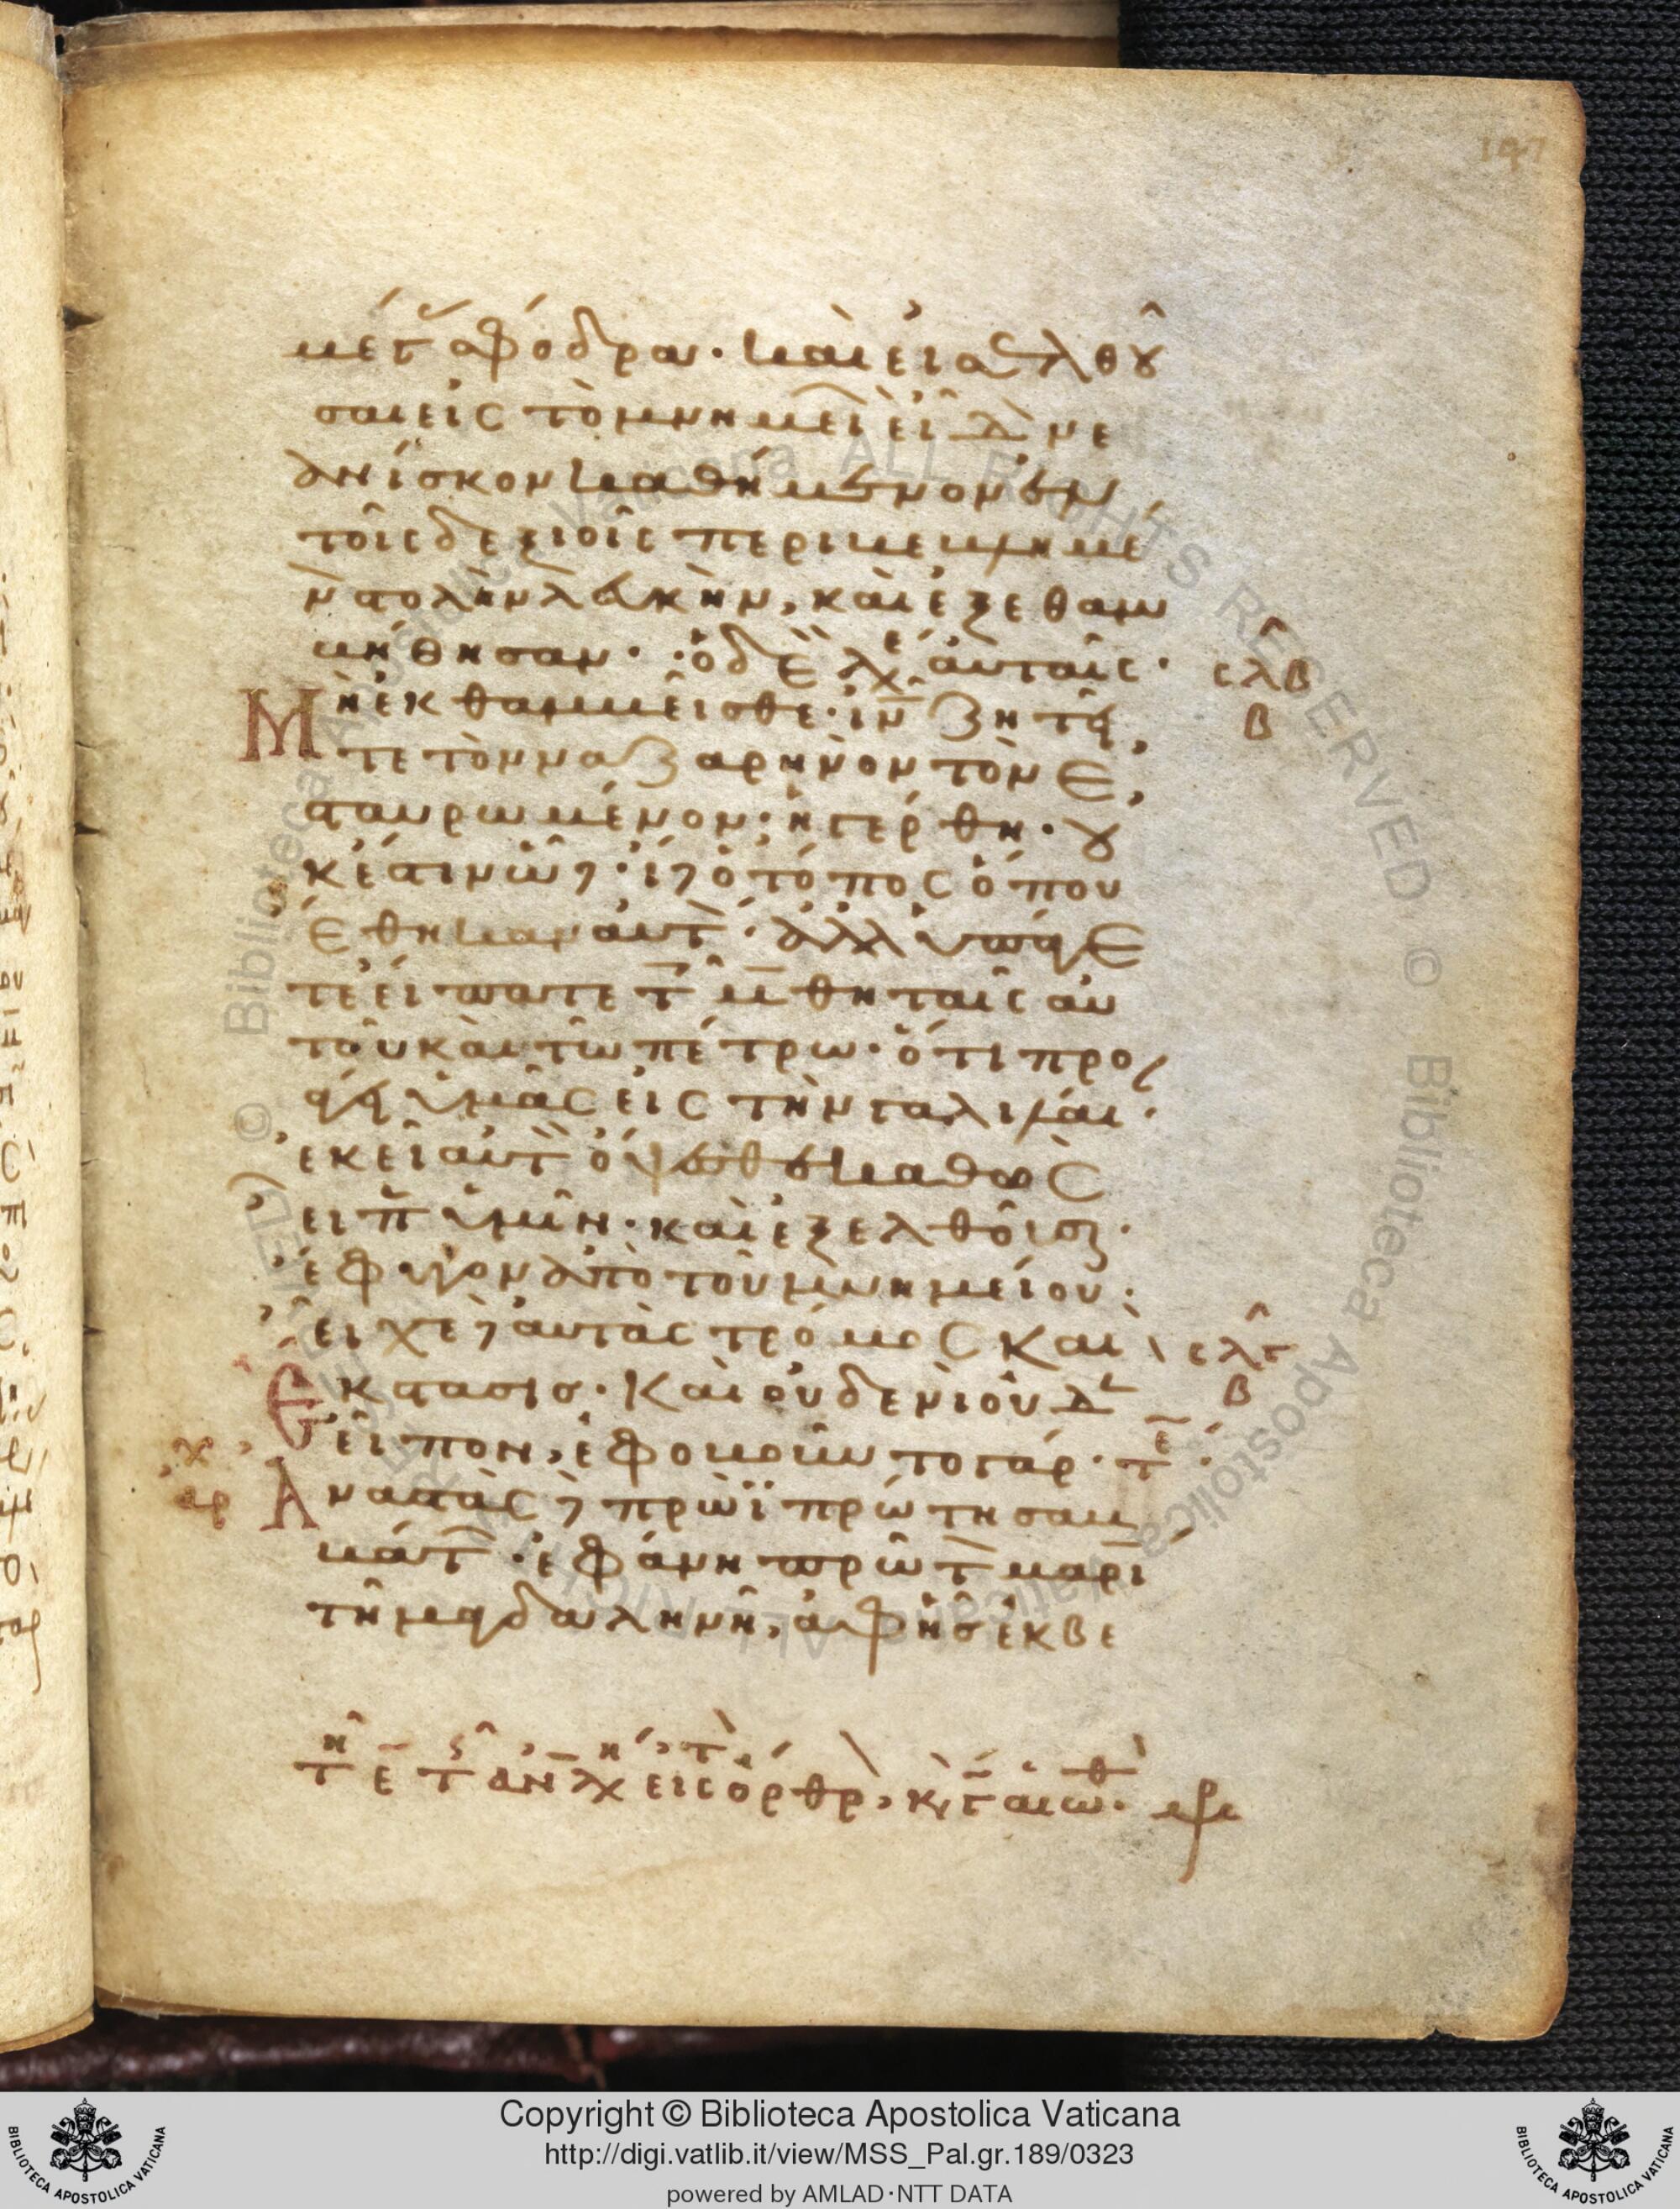 μέγ σφόδρα· καὶ εἰσελθοῦ
σαι εἰς τὸ μνημεῖ εἶδ νε
ανίσκον καθήμενον ἐν
τοῖς δεξιοῖς περιβεβλημέ
ν στολὴν λευκὴν, καὶ ἐξεθαμ
βήθησαν· ὁ δὲ λέγ αὐταῖς·
σλβ
β
Μὴ ἐκθαμβεῖσθε· ἰν ζητεῖ
τε τὸν ναζαρηνὸν τὸν ἐ
σταυρωμένον· ἠγέρθη· οὐ
κ ἔστιν ὧδε· ἴδε ὁ τόπος ὅπου
ἔθηκαν αὐτ· ἀλλ ὑπάγε
τε εἴπατε τ μαθηταῖς αὐ
τοῦ καὶ τῶ πέτρω· ὅτι προ
άγει ὑμᾶς εἰς τὴν γαλιλαι·
ἐκεῖ αὐτ ὄψεσθε καθὼς
εἶπ ὑμῖν· καὶ ἐξελθοῦσαι·
ἔφυγον ἀπὸ τοῦ μνημείου·
εἶχε δὲ αὐτὰς τρόμος καὶ
σλγ
β
Ἔκστασις· καὶ οὐδενὶ οὐδ
εἶπον, ἐφοβοῦντο γάρ· τε
χ
αρ
Ἀναστὰς δὲ πρωῒ πρώτη σαβ
βάτ· ἐφάνη πρῶτ μαρί
τῆ μαγδαληνῆ, ἀφ ἧς ἐκβε
Copyright © Biblioteca Apostolica Vaticana
http://digi.vatlib.it/view/MSS_Pal.gr.189/0323
powered by AMLAD·NTT DATA
BIBLIOTECA APOSTOLICA VATICANA
BIBLIOTECA APOSTOLICA VATICANA